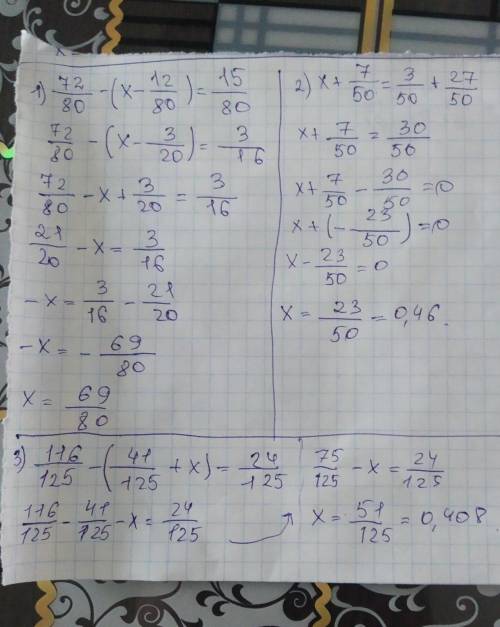 1) 72/80 - (x - 12/80) = 15/80
72/80 - (x - 3/20) = 3/16
72/80 - x + 3/20 = 3/16
21/20 - x = 3/16
-x = 3/16 - 21/20
-x = - 69/80
x = 69/80
2) x + 7/50 = 3/50 + 27/50
x + 7/50 = 30/50
x + 7/50 - 30/50 = 0
x + (- 23/50) = 0
x - 23/50 = 0
x = 23/50 = 0,46.
3) 116/125 - (41/125 + x) = 24/125
116/125 - 41/125 - x = 24/125
75/125 - x = 24/125
x = 51/125 = 0,408